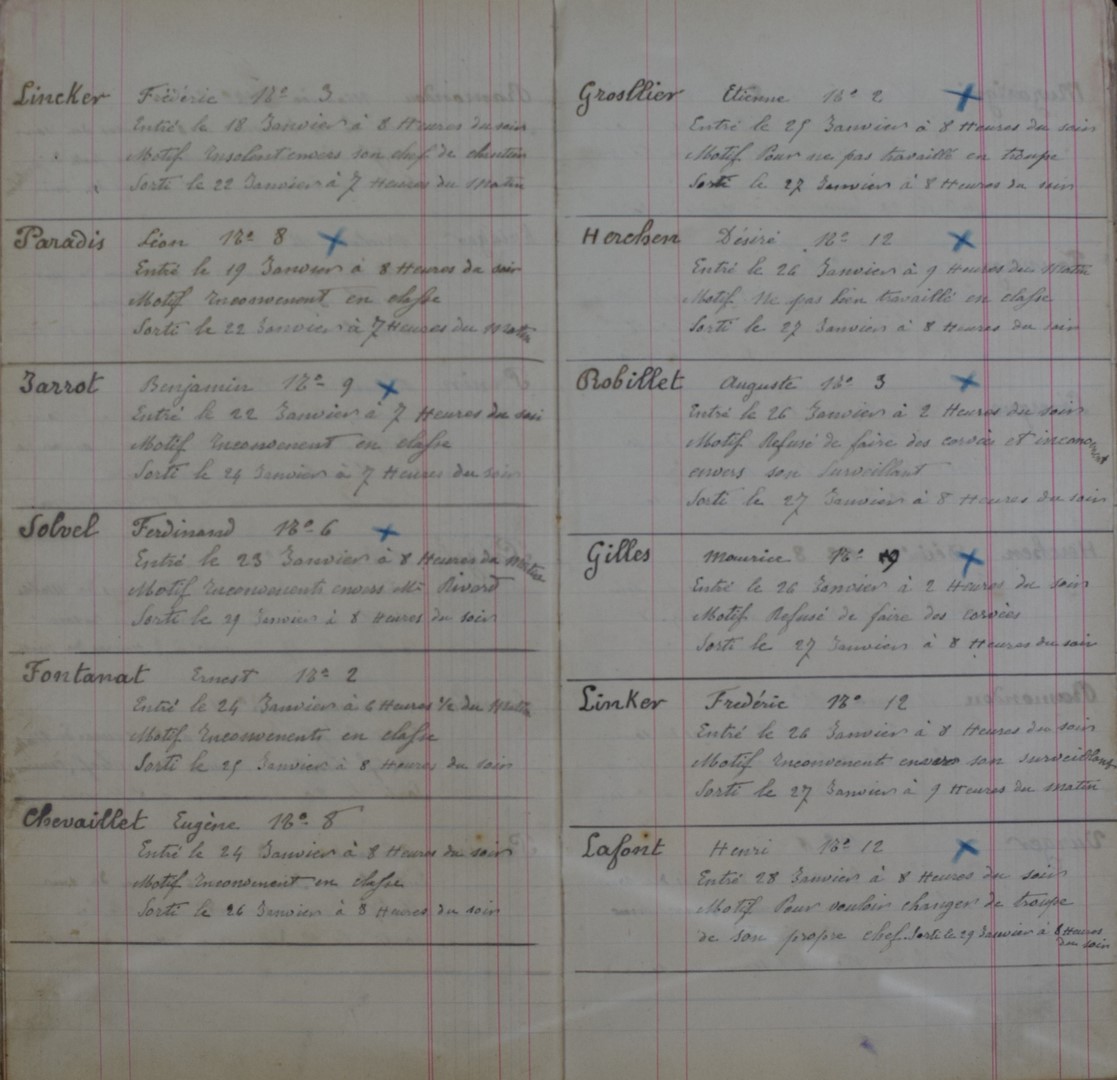 Lincker Frédéric No 3
Entré le 18 Janvier à 8 Heures du soir
Motif Insolent envers son chef de chantier
Sorti le 22 Janvier à 7 Heures du Matin
Paradis Léon No 8
Entré le 19 Janvier à 8 Heures du soir
Motif Inconvenent en classe
Sorti le 22 Janvier à 7 Heures du Matin
Jarrot Benjamin No 9
Entré le 22 Janvier à 7 Heures du soir
Motif Inconvenent en classe
Sorti le 24 Janvier à 7 Heures du soir
Solvel Ferdinand No 6
Entré le 23 Janvier à 8 Heures du Matin
Motif Inconvenents envers Mr Rivard
Sorti le 29 Janvier à 8 Heures du soir
Fontanat Ernest No 2
Entré le 24 Janvier à 6 Heures ½ du Matin
Motif Inconvenents en classe
Sorti le 25 Janvier à 8 Heures du soir
Chevaillet Eugène No 8
Entré le 24 Janvier à 8 Heures du soir
Motif Inconvenent en classe
Sorti le 26 Janvier à 8 Heures du soir
Grosllier Etienne No 2
Entré le 25 Janvier à 8 Heures du soir
Motif Pour ne pas travaillé en troupe
Sorti le 27 Janvier à 8 Heures du soir
Herchen Désiré No 12
Entré le 26 Janvier à 9 Heures du Matin
Motif Ne pas bien travaillé en classe
Sorti le 27 Janvier à 8 Heures du soir
Robillet Auguste No 3
Entré le 26 Janvier à 2 Heures du soir
Motif Refusé de faire des corvées et
envers son Surveillant
Sorti le 27 Janvier à 8 Heures du soir
Gilles Maurice No 9
Entré le 26 Janvier à 2 Heures du soir
Motif Refusé de faire des corvées
Sorti le 27 Janvier à 8 Heures du soir
Linker Frédéric No 12
Entré le 26 Janvier à 8 Heures du soir
Motif Inconvenents envers son surveillant
Sorti le 27 Janvier à 9 Heures du Matin
Lafont Henri No 12
Entré 28 Janvier à 8 Heures du soir
Motif Pour vouloir changer de troupe
de son propre chef. Sorti le 29 Janvier à 8 Heures
du soir